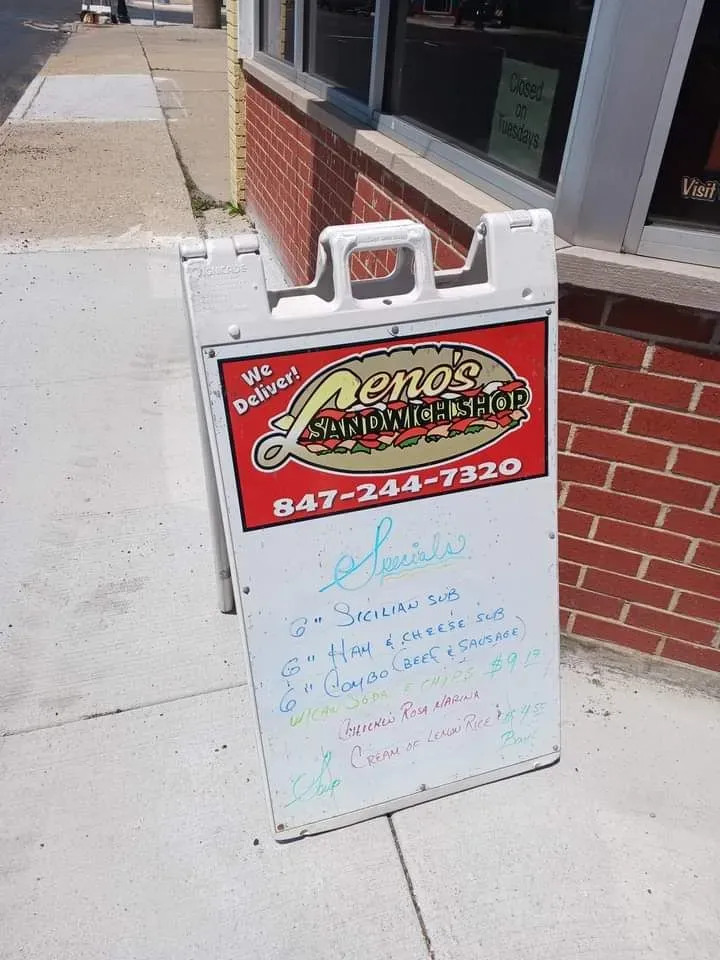 Closed
on
Tuesdays
Visit
We
Deliver!
Leno's
SANDWICH SHOP
847-244-7320
Specials
6" SICILIAN SUB
6" HAM & CHEESE SUB
6" COMBO (BEEF & SAUSAGE)
W/CAN SODA & CHIPS $9.17
CHICKEN ROSA MARINA
CREAM OF LEMON RICE
Soup
Bowl